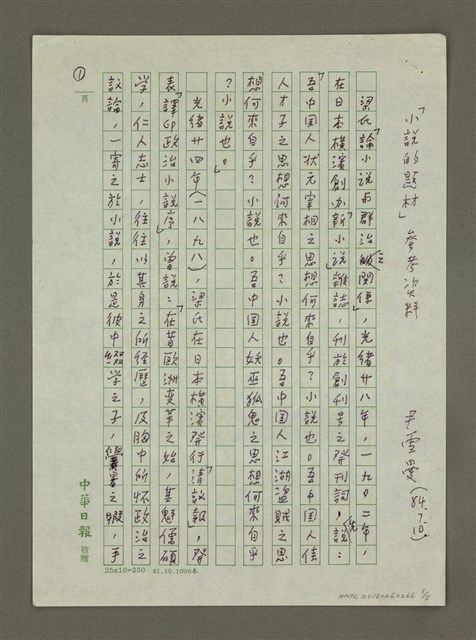 「小說的題材」參考資料
尹雪曼(84.7.10)
梁氏「論小说与群治之関係」,光緒廿八年,一九0二年,
在日本橫濱創办「新小说」雜誌,刋於創刋号之發刋詞,他說:
「吾中国人状元宰相之思想何來自乎?小說也。吾中国人佳
人才子之思想何來自乎?小說也。吾中国人江湖盗贼之思
想何來自乎?小說也。吾中国人妖巫狐鬼之思想何來自乎
?小說也。」
光緒廿四年(一八九八),梁氏在日本橫濱發行「清議報」,發
表「譯印政治小說序」,曾說:「在昔歐洲变革之始,其魁儒碩
学,仁人志士,往往以其身之所経歷,及胸中所怀政治之
議論,一寄之於小說,於是彼中缀学之子,黌塾之暇,手
① 頁
中華日報 敬贈
25x10=250 81.10.1000本
NMTL20160260266 1/5